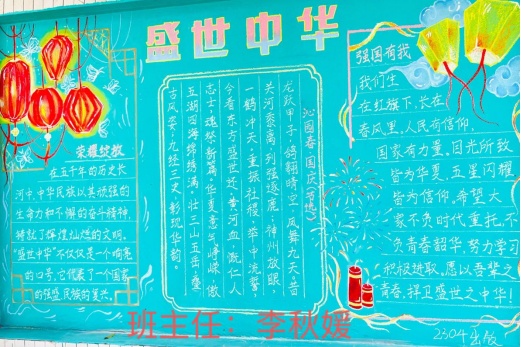 盛世中华
荣耀绽放
在五千年的历史长
河中,中华民族以其顽强的
生命力和不懈的奋斗精神,
铸就了辉煌灿烂的文明。
"盛世中华"不仅仅是一个响亮
的口号,它代表了一个国家
的强盛,民族的复兴。
沁园春·国庆
龙跃甲子,鸽翱晴空,凤舞九天。昔
关河黍离,列强逐鹿,神州放眼
一鹤冲天。重振社稷,举中流誓
今看东方盛世还。黄河血,慨仁人
志士,魂祭新篇。华夏意气峥嵘,傲
五湖四海锦绣满。壮三山五岳,叠
古风姿,九经三史,彰现华韵。
强国有我
我们生
在红旗下,长在
春风里。人民有信仰,
国家有力量。目光所致
皆为华夏,五星闪耀
皆为信仰。希望大
家不负时代重托,不
负青春韶华,努力学习
积极进取。愿以吾辈之
青春,捍卫盛世之中华!
2304出版
班主任：李秋媛